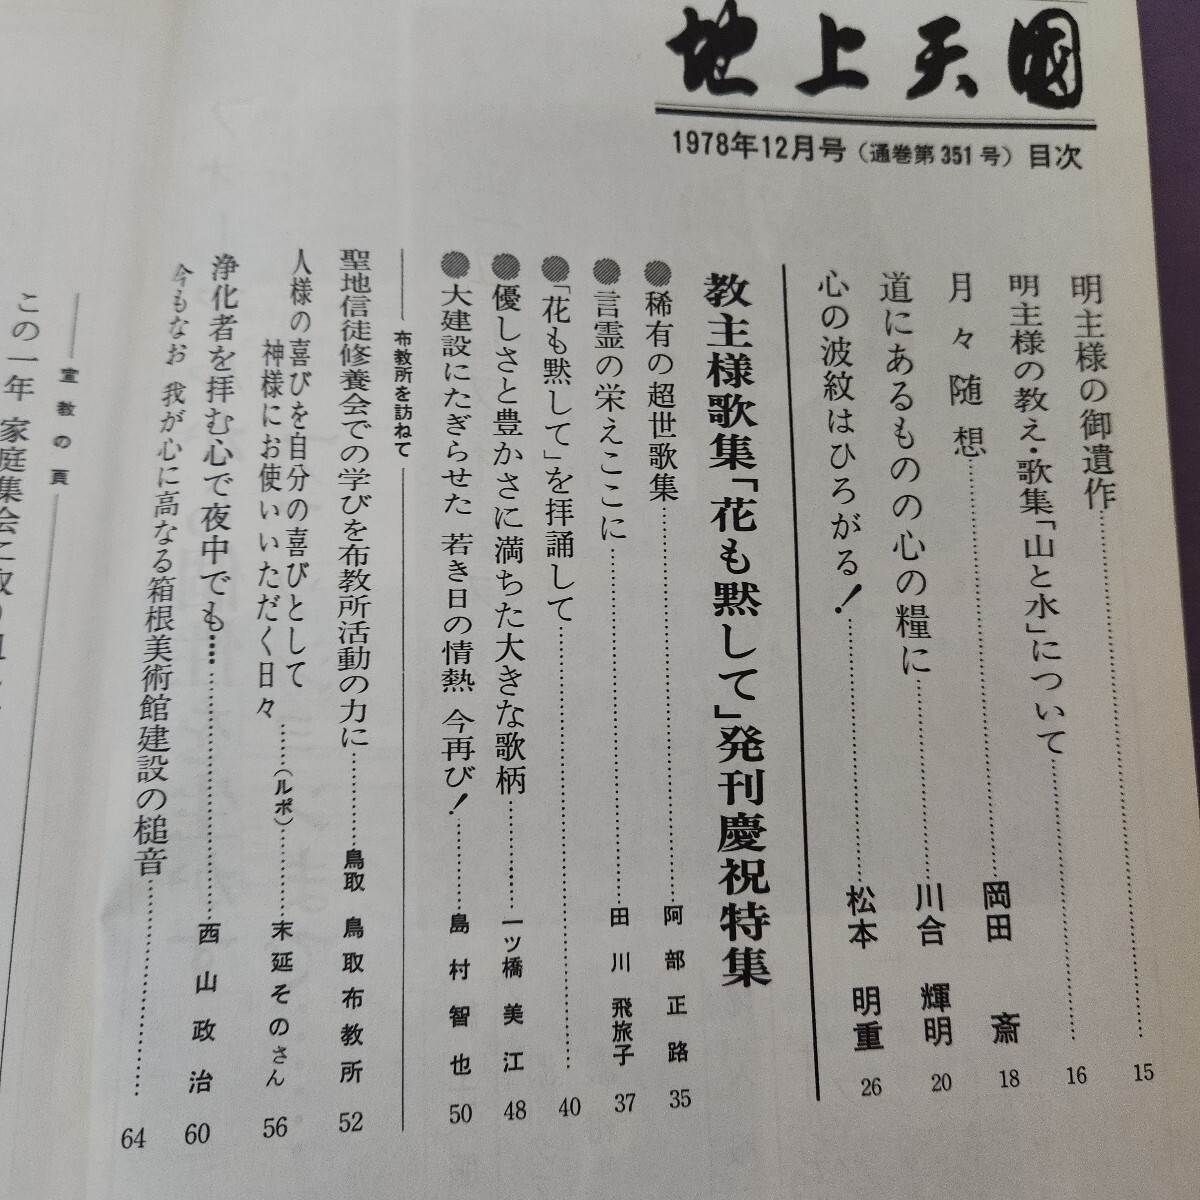 地上天国
1978年12月号（通巻第351号）目次
明主様の御遺作……15
明主様の教え・歌集「山と水」について……16
月々随想……岡田 斎 18
道にあるものの心の糧に……川合 輝明 20
心の波紋はひろがる！……松本 明重 26
教主様歌集「花も黙して」発刊慶祝特集
●稀有の超世歌集……阿部正路 35
●言霊の栄えここに……田川飛旅子 37
●「花も黙して」を拝誦して……40
●優しさと豊かさに満ちた大きな歌柄……一ツ橋美江 48
●大建設にたぎらせた 若き日の情熱 今再び！……島村智也 50
布教所を訪ねて
聖地信徒修養会での学びを布教所活動の力に……鳥取 鳥取布教所 52
人様の喜びを自分の喜びとして
神様にお使いいただく日々……（ルポ）……末延そのさん 56
浄化者を拝む心で夜中でも……西山政治 60
今もなお 我が心に高なる箱根美術館建設の槌音……64
宣教の頁
この一年 家庭集会に取り組